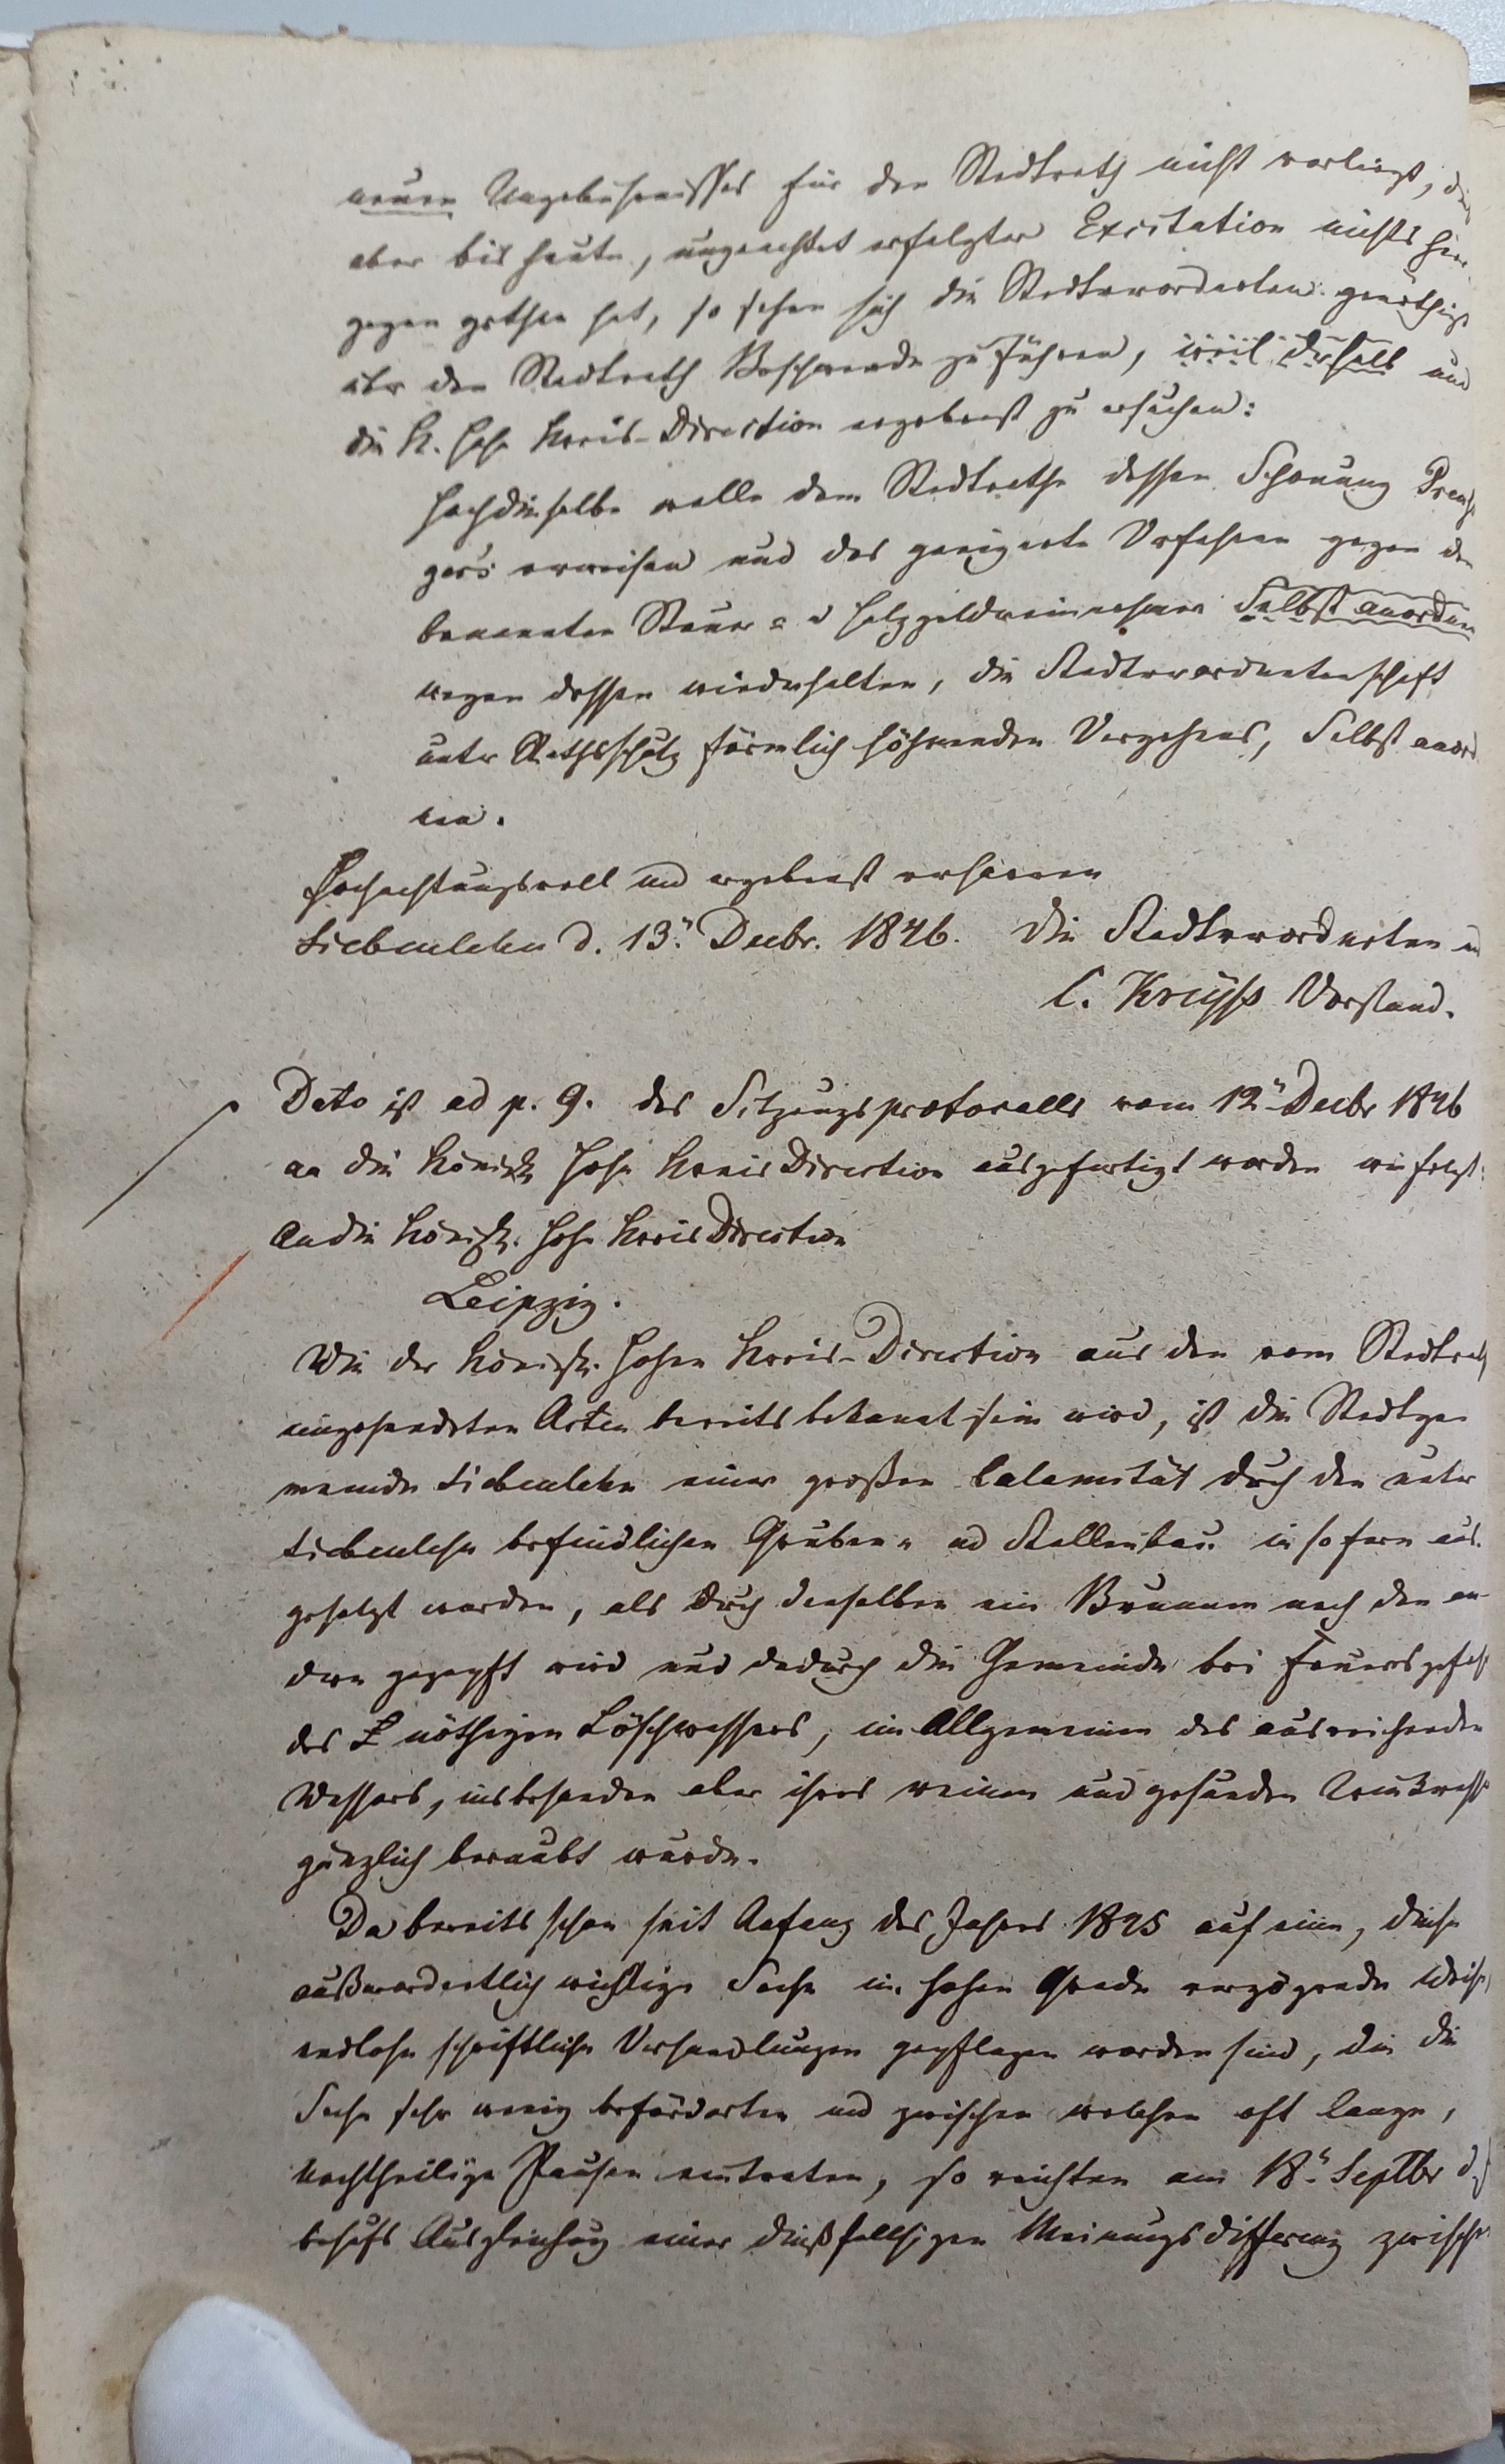 neuen Ungebührnisses für den Stadtrath nicht vorliegt, die
aber bis heute, ungeachtet erfolgter Excitation nichts hier
gegen gethan hat, so sehen sich die Stadtverordneten genöthigt
über den Stadtrath Beschwerde zu führen, und
die K. hohe Kreis-Direction ergebenst zu ersuchen:
Hochdieselbe wolle dem Stadtrathe dessen Schonung
verweisen und das geeignete Verfahren gegen den
benannten Steuer- u Holzgeldereinnehmer Selbst anordnen
wegen dessen wiederholten, die Stadtverordnetenschaft
unter Rathsschutz förmlich höhnenden Vergehens, Selbst anord
nen.
Hochachtungsvoll und ergebenst verharren
Siebenlehn d. 13. Decbr. 1846. Die Stadtverordneten
C. Vorstand.
Dato ist ad p. 9. des Sitzungsprotocolls vom 12. Decbr 1846
an die Königl. Hohe Kreis Direction ausgefertigt worden wie folgt:
An die Königl. Hohe Kreis Direction
Leipzig.
Wie der Königl. hohen Kreis-Direction aus den vom Stadtrath
eingesendeten Acten bereits bekannt sein wird, ist die Stadtge
meinde Siebenlehn einer großen Calamität durch den unter
Siebenlehn befindlichen Gruben- und Stollenbau in sofern aus
gesetzt worden, als durch denselben ein Brunnen nach den an-
dern gezapft wird und dadurch die Gemeinde bei Feuersgefahr
des nöthigen Löschwassers, im Allgemeinen des ausreichenden
Wassers, insbesondere aber ihres reinen und gesunden Trinkwassers
gänzlich beraubt wurde.
Da bereits schon seit Anfang des Jahres 1845 auf eine, diese
außerordentlich wichtige Sache in hohen Grade verzögernde Weise,
endlose schriftliche Verhandlungen gepflogen worden sind, die die
Sache sehr wenig beförderten und zwischen welchen oft lange,
nachtheilige Pausen eintraten, so reichten am 18. Septbr d. J.
behufs Ausgleichung einer dießfallsigen Meinungsdifferenz zwischen